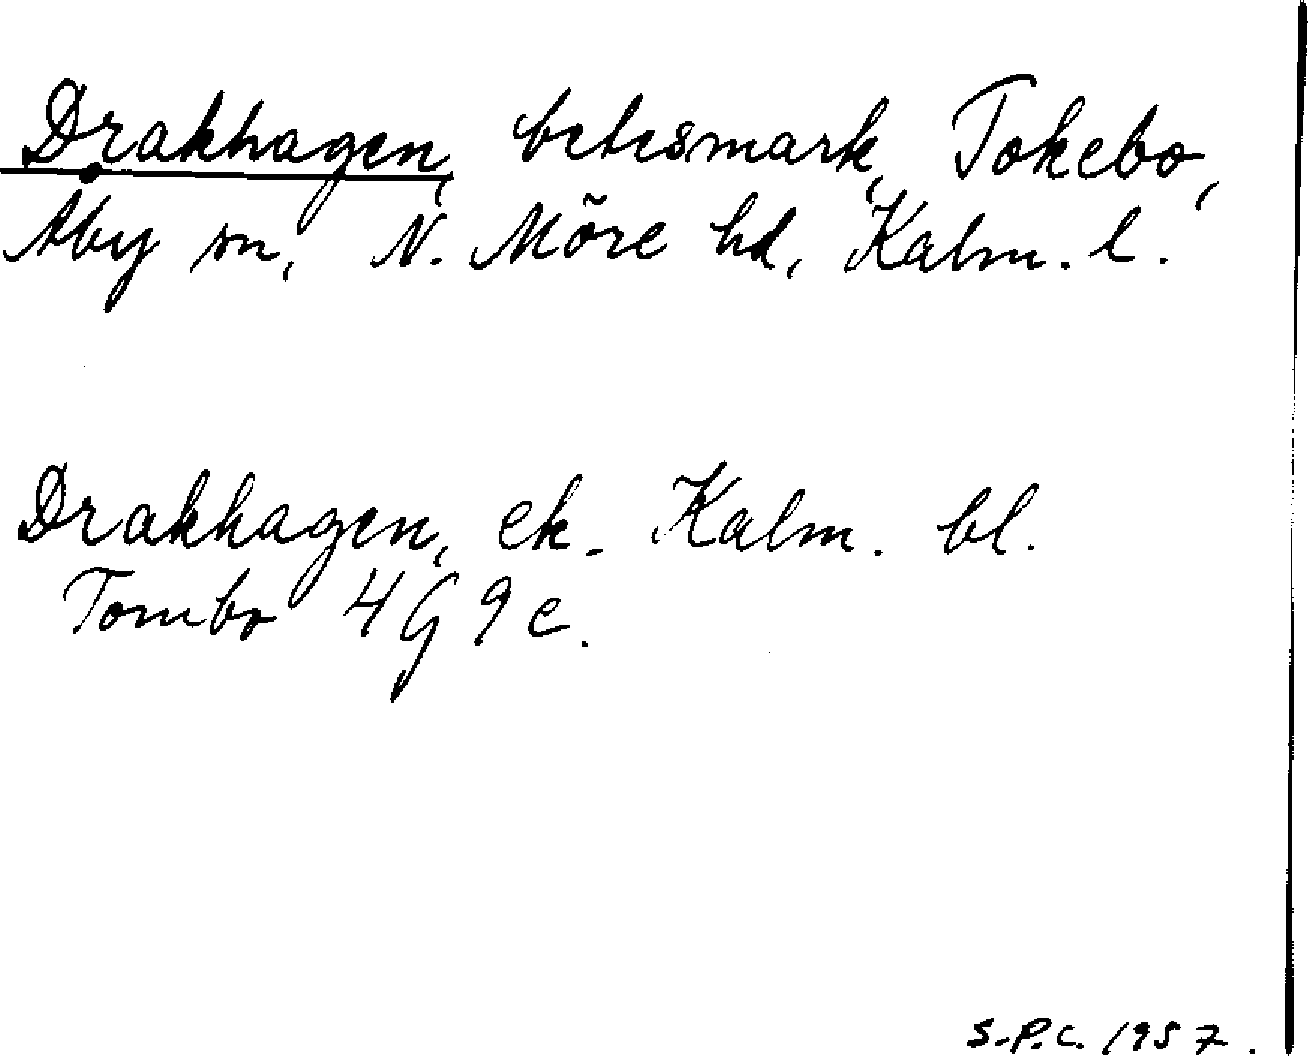 Drakhagen, betesmark, Tokebo,
Åby sn, N. Möre hd, Kalm. l.
Drakhagen, ek. Kalm. bl.
Tombo 4G 9e.
S.P.C. 1957.